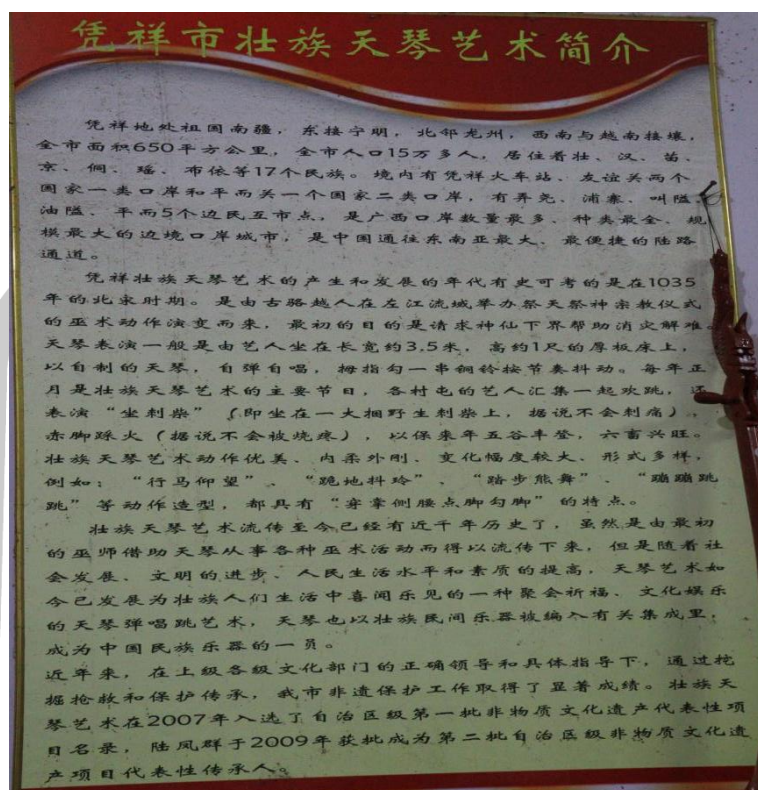 凭祥市壮族天琴艺术简介
凭祥地处祖国南疆，东接宁明，北邻龙州，西南与越南接壤，
全市面积650平方公里，全市人口15万多人，居住着壮、汉、苗、
京、侗、瑶、布依等17个民族。境内有凭祥火车站、友谊关两个
国家一类口岸和平而关一个国家二类口岸，有弄尧、浦寨、叫隘、
油隘、平而5个边民互市点，是广西口岸数量最多、种类最全、规
模最大的边境口岸城市，是中国通往东南亚最大、最便捷的陆路
通道。
凭祥壮族天琴艺术的产生和发展的年代有史可考的是在1035
年的北宋时期。是由古骆越人在左江流域举办祭天祭神宗教仪式
的巫术动作演变而来，最初的目的是请求神仙下界帮助消灾解难。
天琴表演一般是由艺人坐在长宽约3.5米，高约1尺的厚板床上，
以自制的天琴，自弹自唱，拇指勾一串铜铃按节奏抖动。每年正
月是壮族天琴艺术的主要节日，各村屯的艺人汇集一起欢跳，还
表演“坐刺柴”（即坐在一大捆野生刺柴上，据说不会刺痛），
赤脚踩火（据说不会被烧疼），以保来年五谷丰登，六畜兴旺。
壮族天琴艺术动作优美、内柔外刚、变化幅度较大、形式多样，
例如：“行马仰望”、“跪地抖玲”、“踏步熊舞”、“蹦蹦跳
跳”等动作造型，都具有“穿掌侧腰点脚勾脚”的特点。
壮族天琴艺术流传至今已经有近千年历史了，虽然是由最初
的巫师借助天琴从事各种巫术活动而得以流传下来，但是随着社
会发展、文明的进步、人民生活水平和素质的提高，天琴艺术如
今已发展为壮族人们生活中喜闻乐见的一种聚会祈福、文化娱乐
的天琴弹唱跳艺术，天琴也以壮族民间乐器被编入有关集成里，
成为中国民族乐器的一员。
近年来，在上级各级文化部门的正确领导和具体指导下，通过挖
掘抢救和保护传承，我市非遗保护工作取得了显著成绩。壮族天
琴艺术在2007年入选了自治区级第一批非物质文化遗产代表性项
目名录，陆凤群于2009年获批成为第二批自治区级非物质文化遗
产项目代表性传承人。